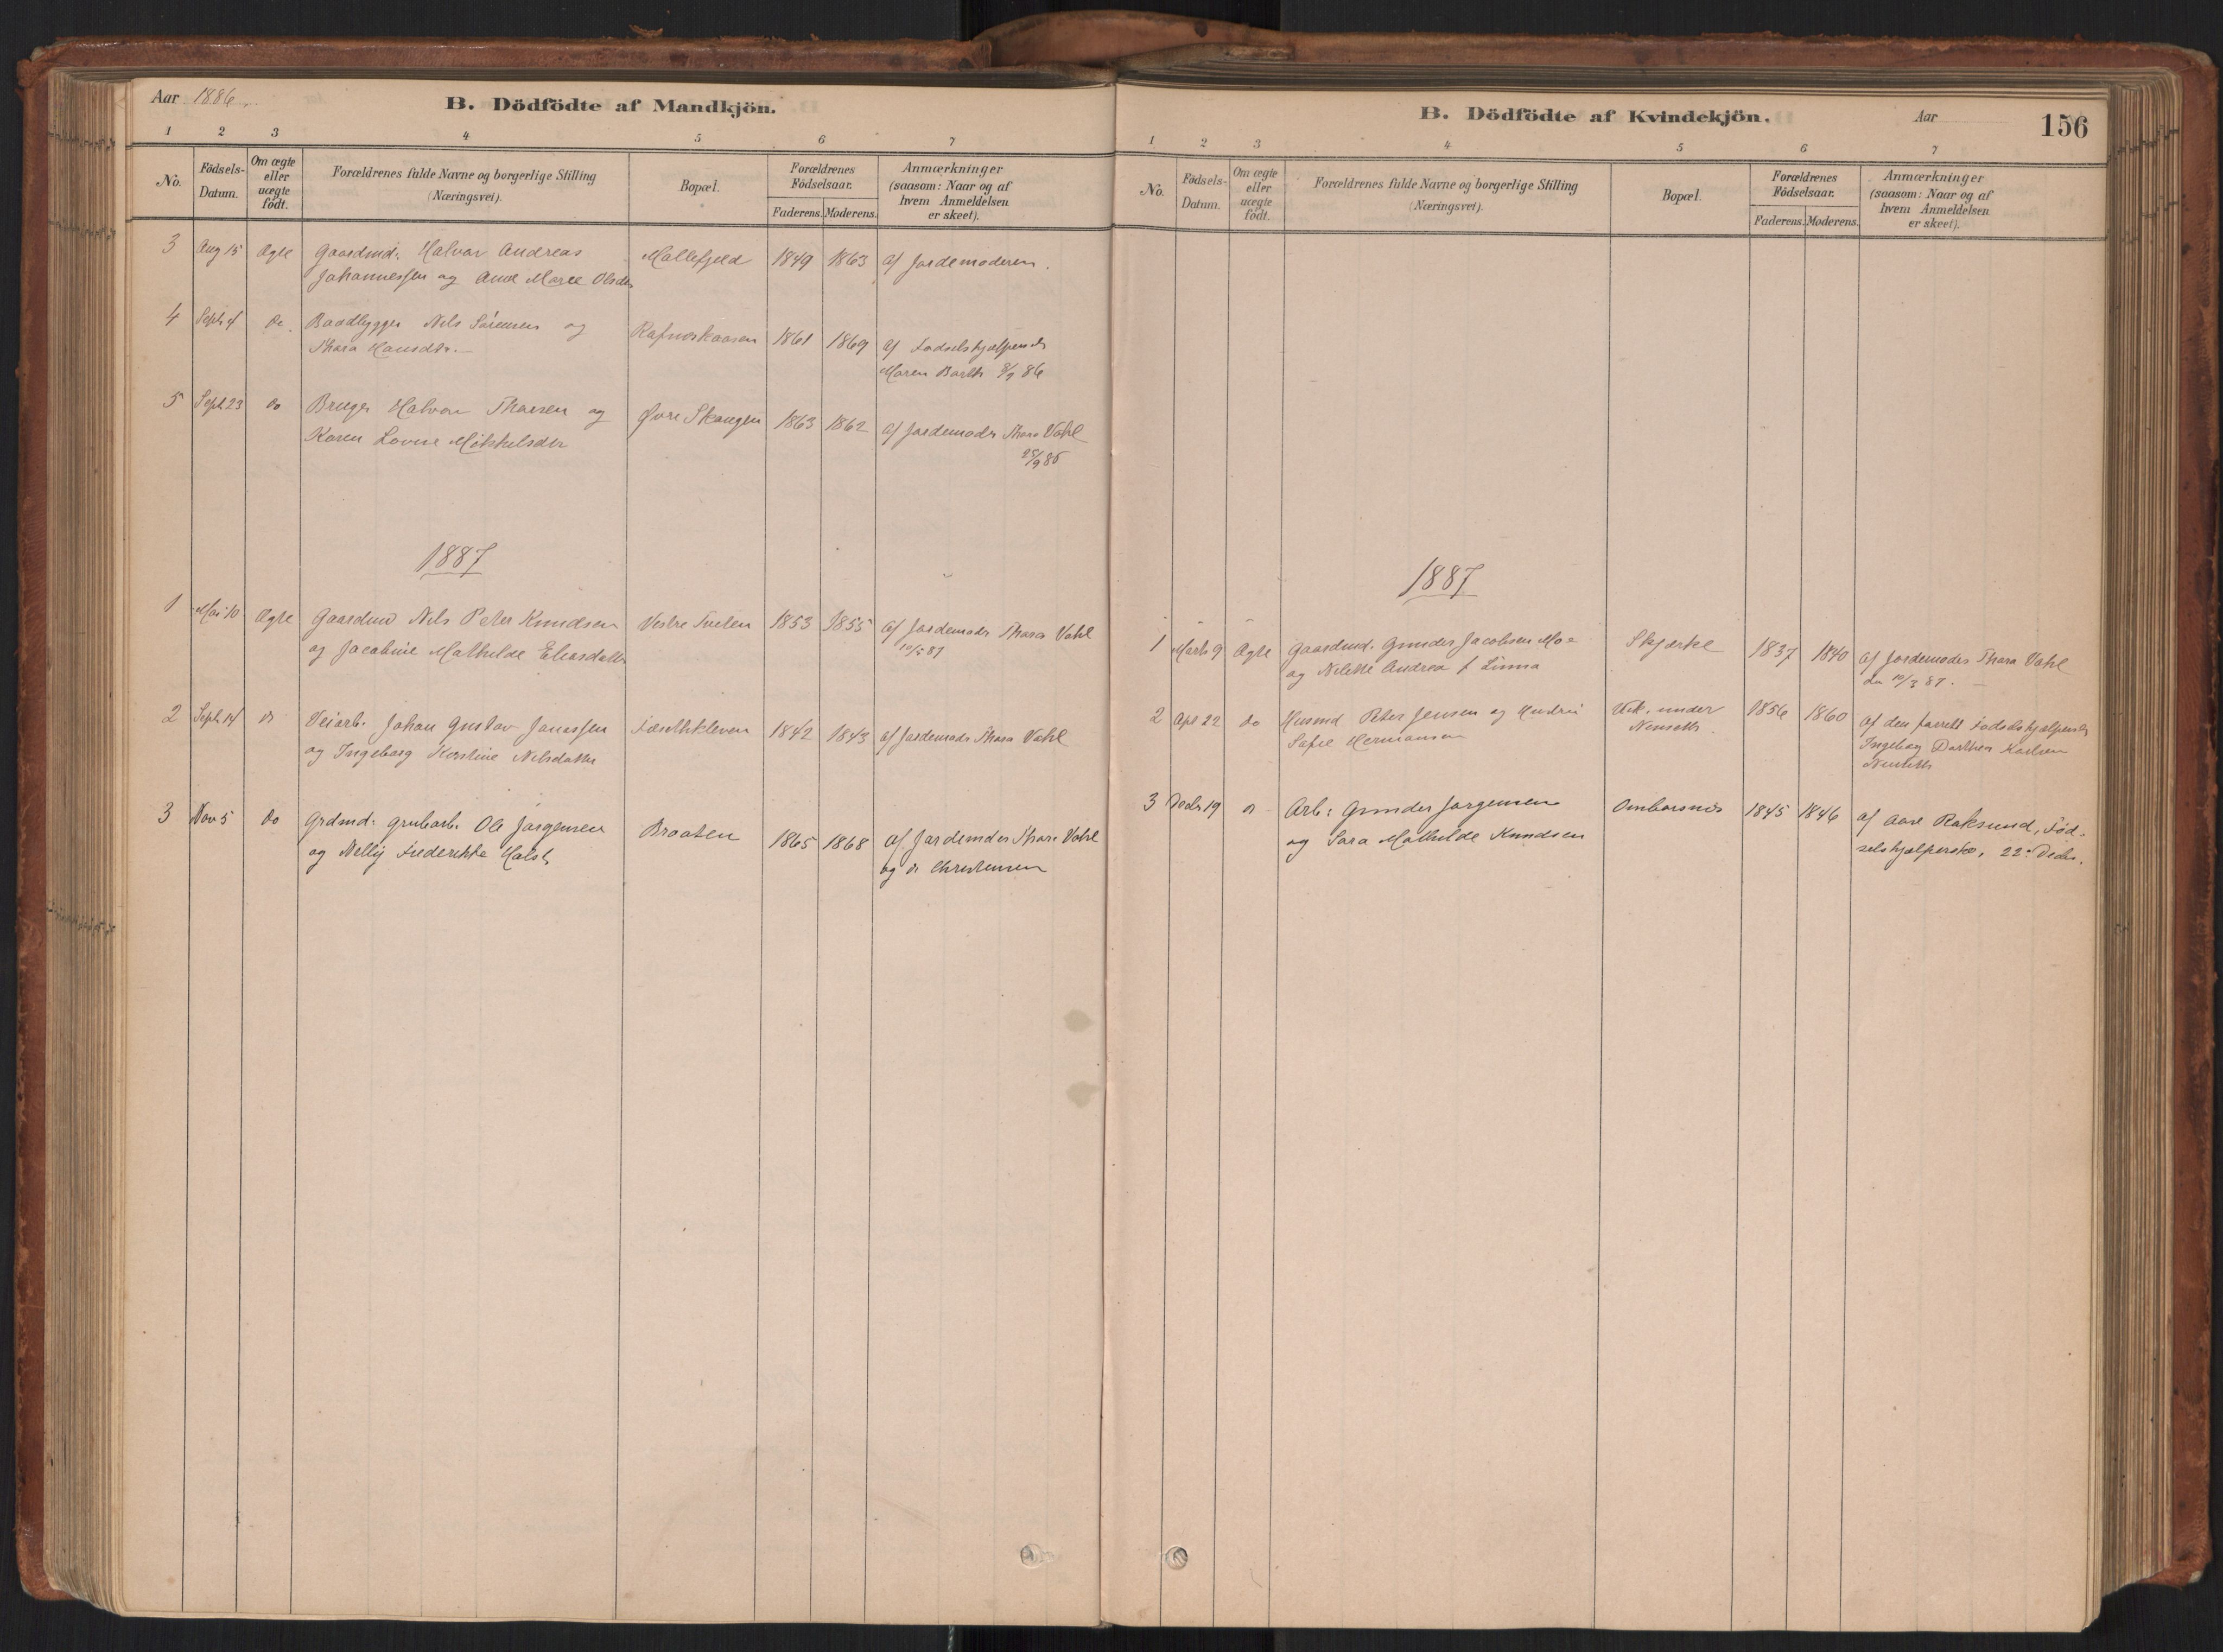 Aar 1886.
B. Dödfödte af Mandkjön.
1 2 3 4 5 6 7
No.
Födsels-Datum.
Om ægte eller uægte födt.
Forældrenes fulde Navne og borgerlige Stilling (Næringsvei).
Bopæl.
Forældrenes Födselsaar.
Faderens. Moderens.
Anmærkninger (saasom: Naar og af hvem Anmeldelsen er skeet).
3 Aug 15 Ægte Gaardmd. Halvor Andreas Mallefjeld 1849 1863 af Jordemoderen.
Johannessen og Anne Marie Olsdtr
4 Septr 4 do. Baadbygger Nils Sörensen og Rafnæskaasen 1861 1869 af Fødselshjælpersk
Thora Hansdtr.
Maren Barth 8/9 86
5 Sept 23 do Bruger Halvor Thorsen og Øvre Skaugen 1863 1862 af Jordemoder Thora Vahl
Karen Lovise Mikkelsdtr
25/9 86
1887
1 Mai 10 Ægte Gaardmd Nils Peter Knudsen Vestre Tveten 1853 1855 af Jordemodr Thora Vahl
og Jacobine Mathilde Eliasdatter
10/5 87
2 Septr 14 do Veiarb. Johan Gustav Janessen 1842 1843 af Jordemodr Thora Vahl
og Ingeborg Kirstine Nilsdatter
3 Nov 5 do Grdmd: grubearb. Ole Jørgensen Braaten 1865 1868 af Jordemdr Thora Vahl
og Nelly Frederikke Holst
og dr Christensen
B. Dödfödte af Kvindekjön.
Aar
156
1 2 3 4 5 6 7
No.
Födsels-Datum.
Om ægte eller uægte födt.
Forældrenes fulde Navne og borgerlige Stilling (Næringsvei).
Bopæl.
Forældrenes Födselsaar.
Faderens. Moderens.
Anmærkninger (saasom: Naar og af hvem Anmeldelsen er skeet).
1887
1 Marts 9 Ægte Gaardmd. Gunder Jacobsen Moe Skjærke 1837 1840 af Jordemoder Thora Vahl
og Nilette Andrea f. Linna
den 10/3 87.
2 Apl 22 do Husmd Peter Jensen og under 1856 1860 af den Fødselshjælpersk
Sofie Hermansen Nenseth
Ingeborg Dorthea Karlsen
Nenseth
3 Decbr 19 do Arb: Gunder Jørgensen Omborsnes 1845 1846 af Aase Raksund, Fød-
og Sara Mathilde Knudsen
selshjælperske, 22. Decbr.